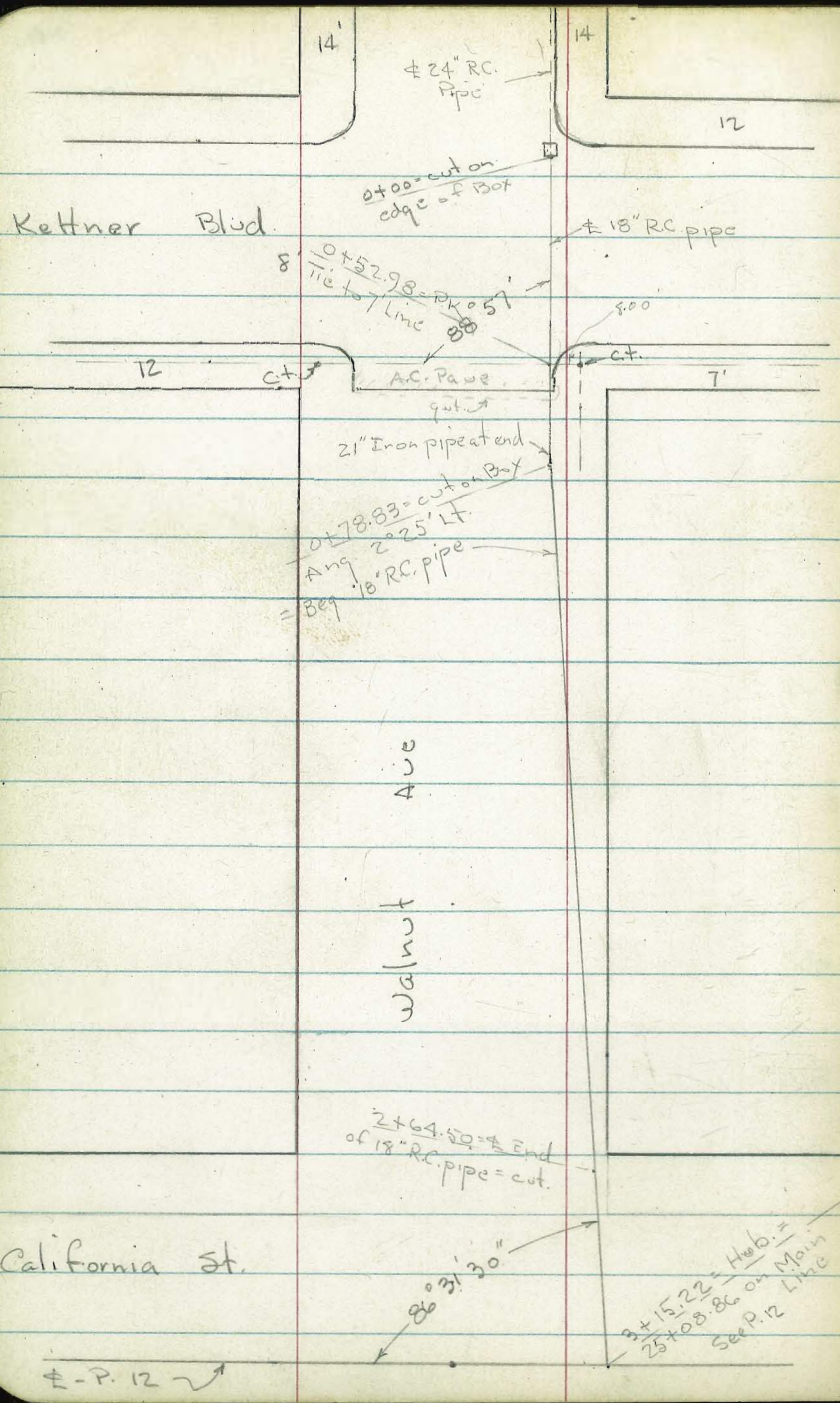 14'
14
℄ 24" R.C.
Pipe
12
0+00 = cut on
edge of Box
Kettner Blvd.
℄ 18" R.C. pipe
0+52.98 = PK
8' Tie to 7' Line
88° 57'
8.00'
12
C.t.
C.t.
A.C. Pave
7'
gut.
21" Iron pipe at end
0+78.83 = cut on Box
Ang 2° 25' Lt.
= Beg 18" R.C. pipe
Walnut Ave
2+64.50 = ℄ End
of 18" R.C. pipe = cut.
California St.
86° 31' 30"
3+15.22 = Hub. =
25+08.86 on Main
Line
See P. 12
℄ - P. 12